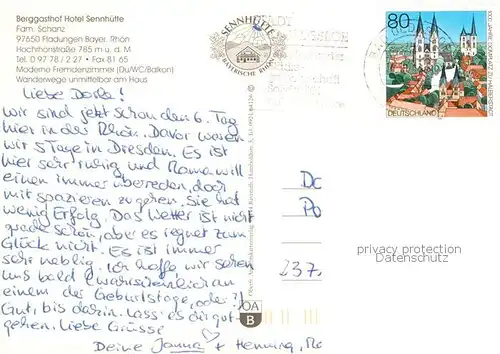 Berggasthof Hotel Sennhütte
Fam. Schanz
97650 Fladungen Bayer. Rhön
Hochrhönstraße 785 m u. d. M.
Tel. 0 97 78 / 2 27 • Fax 81 65
Moderne Fremdenzimmer (Du/WC/Balkon)
Wanderwege unmittelbar am Haus
SENNHÜTTE
BAYERISCHE RHÖN
80
DEUTSCHLAND
Liebe Dorla!
Wir sind jetzt schon den 6. Tag
hier in der Rhön. Davor waren
wir 5 Tage in Dresden. Es ist
hier sehr ruhig und Mama will
einen immer überreden, doch
mit spazieren zu gehen. Sie hat
wenig Erfolg. Das Wetter ist nicht
gerade schön, aber es regnet zum
Glück nicht. Es ist immer
sehr neblig. Ich hoffe, wir sehen
uns bald (wahrscheinlich an
einem der Geburtstage, oder?)
Gut, bis dahin. Lass' es dir gut-
gehen. Liebe Grüsse
Deine Janna + Henning,
Do
Po
237
privacy protection
Datenschutz
OA
B